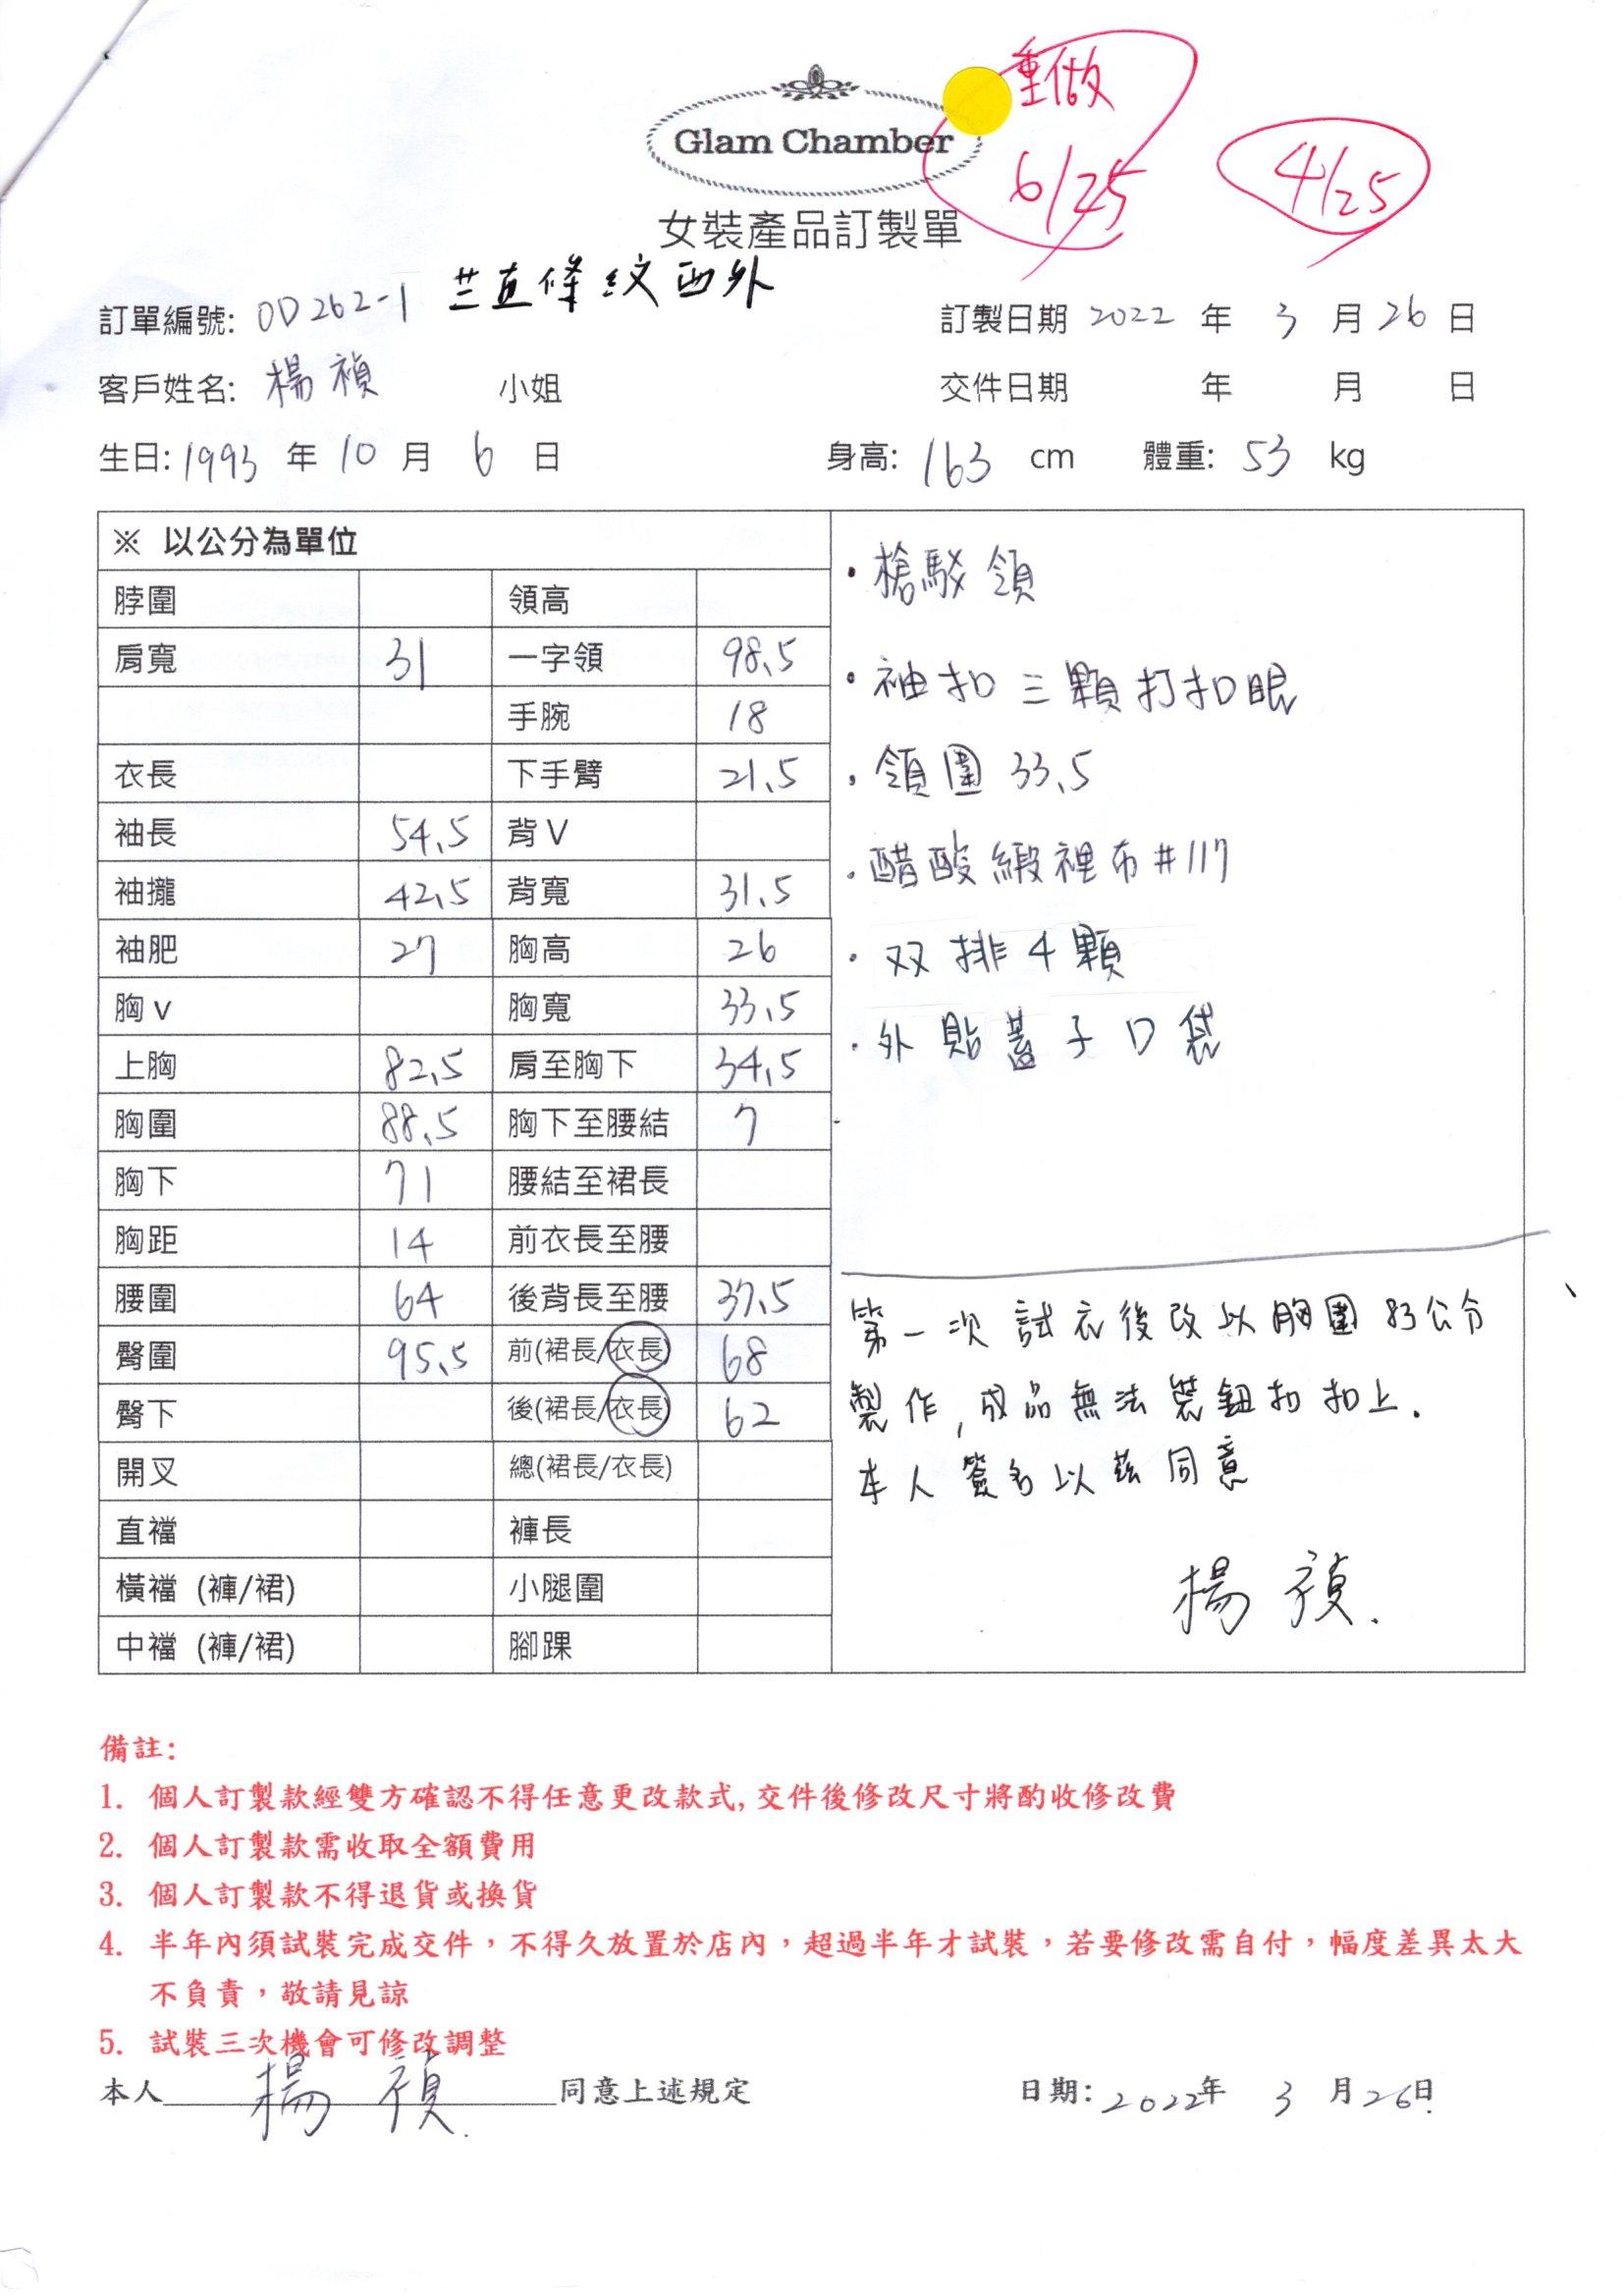 重做
6/25
4/25
Glam Chamber
女裝產品訂製單
訂單編號: OD262-1 直條紋西外
訂製日期 2022 年 3 月 26 日
客戶姓名: 楊禎 小姐
交件日期 年 月 日
生日: 1993 年 10 月 6 日
身高: 163 cm 體重: 53 kg
※ 以公分為單位
脖圍 領高
肩寬 31 一字領 98.5
手腕 18
衣長 下手臂 21.5
袖長 54.5 背V
袖攏 42.5 背寬 31.5
袖肥 27 胸高 26
胸v 胸寬 33.5
上胸 82.5 肩至胸下 34.5
胸圍 88.5 胸下至腰結 7
胸下 71 腰結至裙長
胸距 14 前衣長至腰
腰圍 64 後背長至腰 37.5
臀圍 95.5 前(裙長/衣長) 68
臀下 後(裙長/衣長) 62
開叉 總(裙長/衣長)
直襠 褲長
橫襠 (褲/裙) 小腿圍
中襠 (褲/裙) 腳踝
·槍駁領
·袖扣三顆打扣眼
·領圍 33.5
·醋酸緞裡布#117
·双排4顆
·外貼蓋子口袋
第一次試衣後改以胸圍83公分
製作,成品無法裝鈕扣扣上.
本人簽名以茲同意
楊禎.
備註:
1. 個人訂製款經雙方確認不得任意更改款式,交件後修改尺寸將酌收修改費
2. 個人訂製款需收取全額費用
3. 個人訂製款不得退貨或換貨
4. 半年內須試裝完成交件，不得久放置於店內，超過半年才試裝，若要修改需自付，幅度差異太大
不負責，敬請見諒
5. 試裝三次機會可修改調整
本人 楊禎. 同意上述規定
日期: 2022年 3 月 26日.